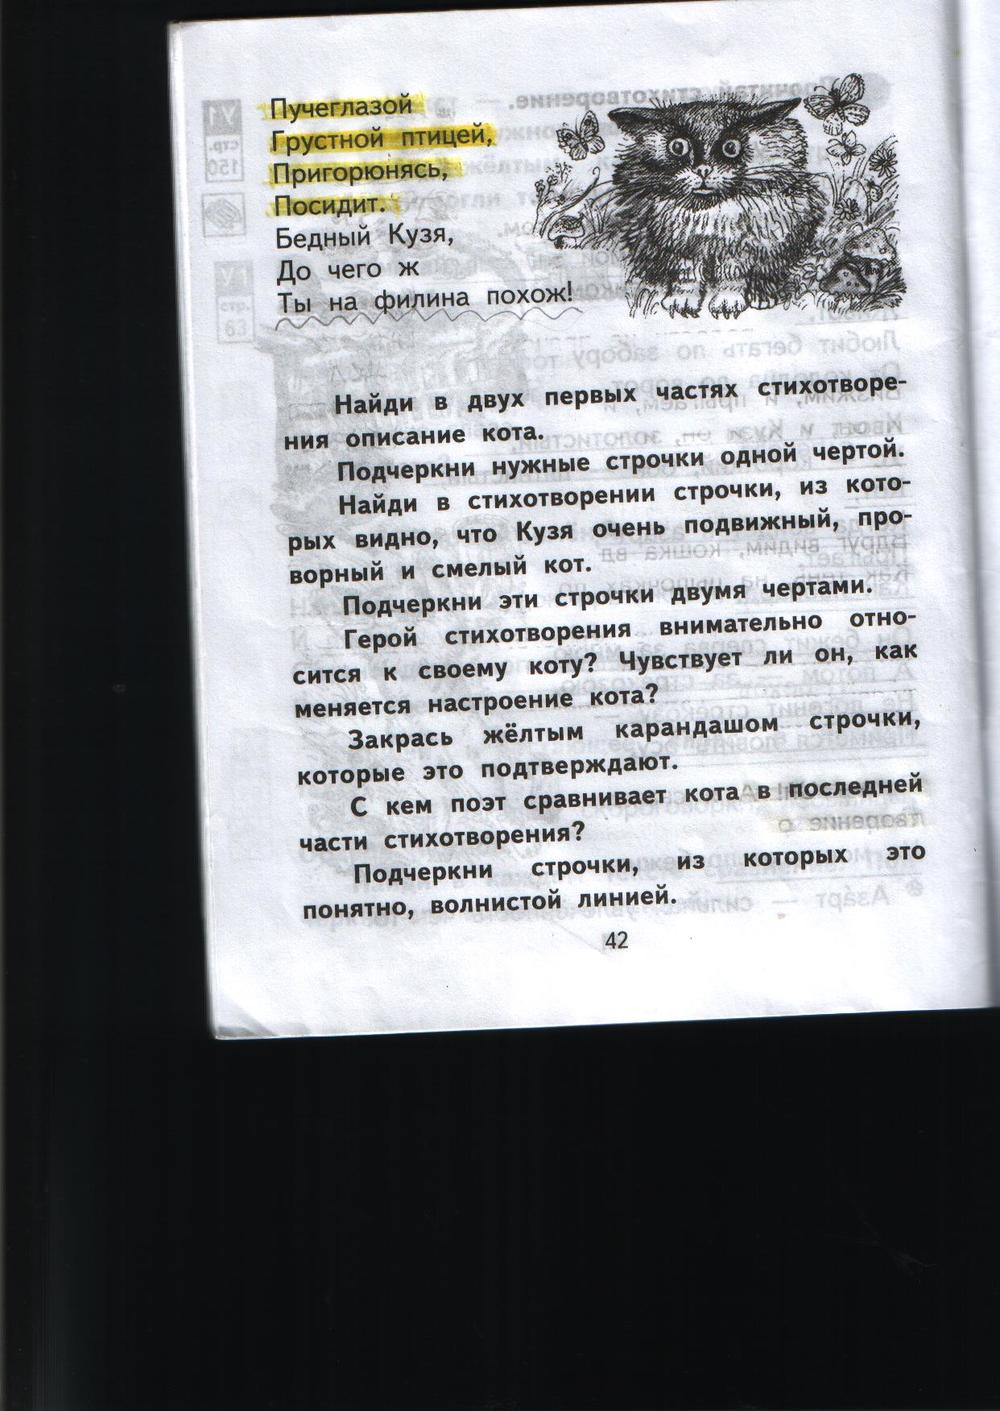 Пучеглазой
Грустной птицей,
Пригорюнясь,
Посидит.
Бедный Кузя,
До чего ж
Ты на филина похож!
Найди в двух первых частях стихотворе-
ния описание кота.
Подчеркни нужные строчки одной чертой.
Найди в стихотворении строчки, из кото-
рых видно, что Кузя очень подвижный, про-
ворный и смелый кот.
Подчеркни эти строчки двумя чертами.
Герой стихотворения внимательно отно-
сится к своему коту? Чувствует ли он, как
меняется настроение кота?
Закрась жёлтым карандашом строчки,
которые это подтверждают.
С кем поэт сравнивает кота в последней
части стихотворения?
Подчеркни строчки, из которых это
понятно, волнистой линией.
42